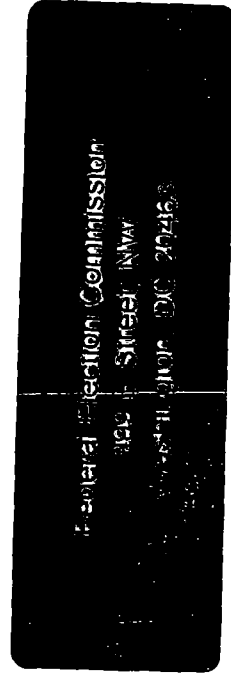 Federal Election Commission
999 E Street NW
Washington DC 20463